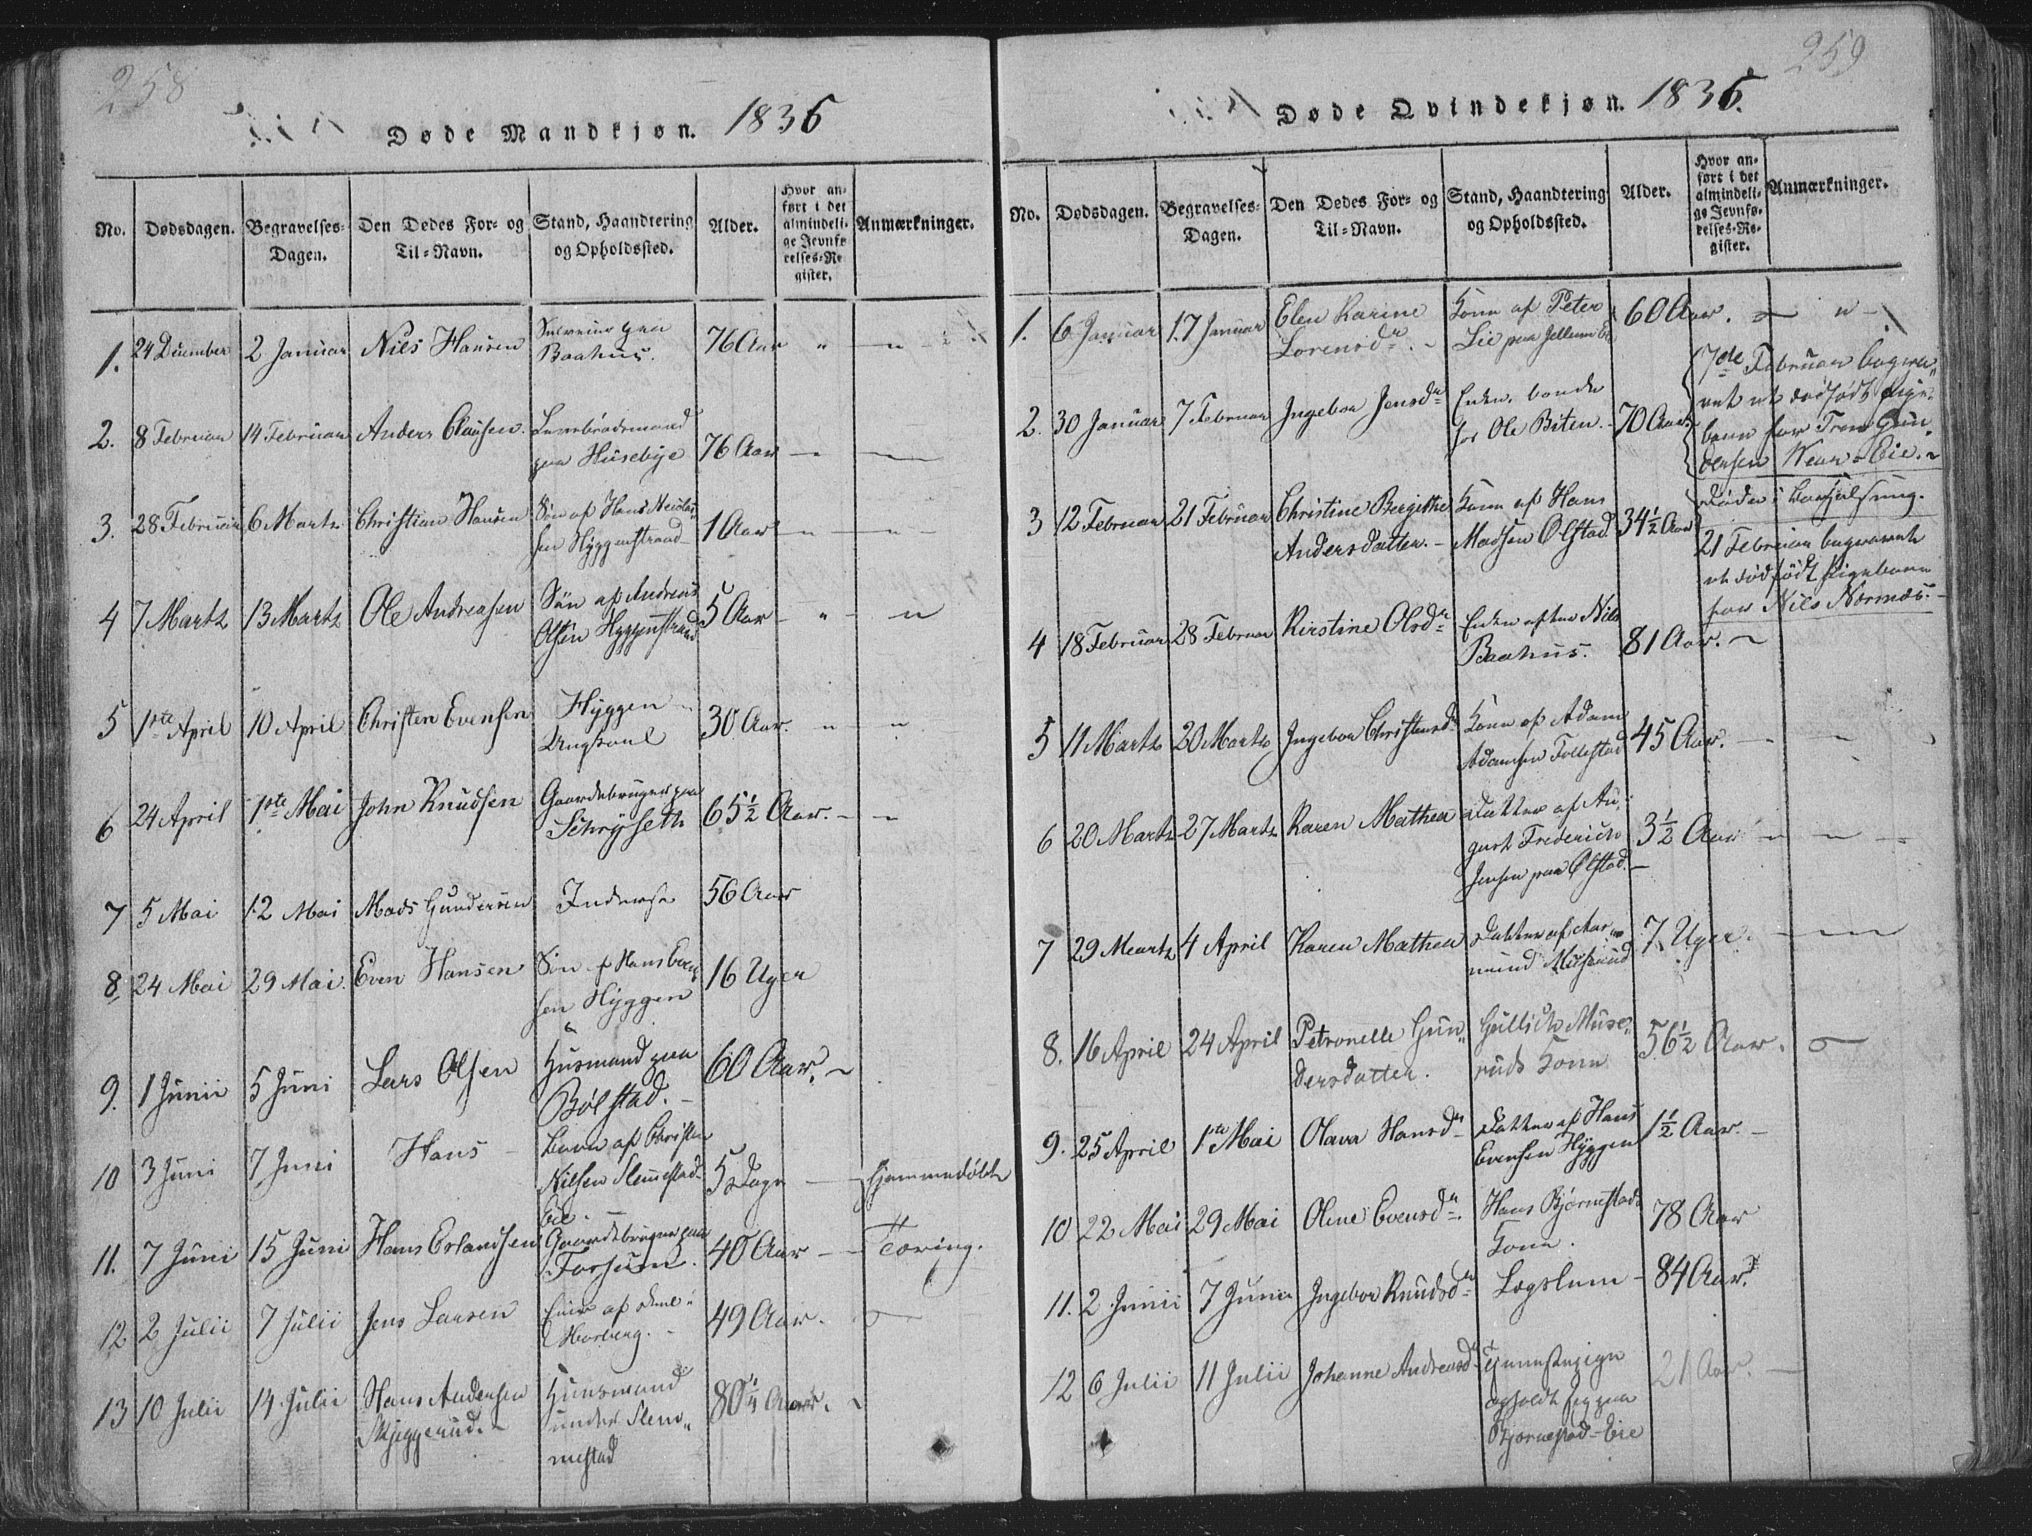 258
Døde Mandkjøn. 1836
No.
Dødsdagen.
Begravelses-
Dagen.
Den Dødes For- og
Til-Navn.
Stand, Haandtering
og Opholdssted.
Alder.
Hvor an-
ført i det
almindeli-
ge Jevnfø-
relses-Re-
gister.
Anmærkninger.
1. 24 December 2 Januar Niels Hansen paa 76 Aar
Baahus.
2. 8 Februar 14 Februar Anders Clausen. 76 Aar
paa Husebye
3. 28 Februar 6 Martz Christian Hansen Søn af Hans Nicolai-
sen Hyggenstrand 1 Aar
4 7 Martz 13 Martz Ole Andreasen Søn af Andreas
Olsen Hyggenstrand 5 Aar
5 1ste April 10 April Christen Evensen Hyggen
Ungkarl 30 Aar.
6 24 April 1ste Mai John Knudsen Gaardebruger paa
65½ Aar.
7 5 Mai 12 Mai Mads Gundersen 56 Aar
8 24 Mai 29 Mai. Even Hansen Søn af Hans Even-
sen Hyggen 16 Uger
9. 1 Junii 5 Juni Lars Olsen Husmand paa
Bølstad. 60 Aar.
10 3 Juni 7 Juni Hans Barn af Christen
Nilsen Slemestad-
Eie. 5 Dage hjemmedøbt
11. 7 Juni 15 Juni Hans Erlandsen Gaardebruger paa
40 Aar Tæring.
12. 2 Julii 7 Julii Jens Larsen
Morberg. 49 Aar.
13 10 Julii 14 Julii Hans Andersen
Skjeggerud. Huusmand
under Slem-
mestad 80¼ Aar.
259
Døde Qvindekjøn. 1836.
No.
Dødsdagen.
Begravelses-
Dagen.
Den Dødes For- og
Til-Navn.
Stand, Haandtering
og Opholdssted.
Alder.
Hvor an-
ført i det
almindeli-
ge Jevnfø-
relses-Re-
gister.
Anmærkninger.
1. 6 Januar 17 Januar Elen Karine
Lorensdr. Kone af Peter
Lie paa 60 Aar.
2. 30 Januar 7 Februar Ingebor Jensdr Enke
for Ole Biten. 70 Aar.
7de Februar begra-
vet et dødfødt Pige-
barn for Tron Gun-
dersen Kear-Eie.
3 12 Februar 21 Februar Christine Bergithe
Andersdatter. Kone af Hans
Madsen Ølstad. 34½ Aar
Døde i Barselseng.
21 Februar begravet
et dødfødt Pigebarn
for Nils Nærnæs.
4 18 Februar 28 Februar Kirstine Olsdr Enke efter Nils
Baahus. 81 Aar.
5 11 Martz 20 Martz Ingebor Christensdr Kone af Adam
Adamsen Follestad 45 Aar.
6 20 Martz 27 Martz Karen Mathea Datter af Au-
gust Frederich
Jensen paa Ølstad. 3½ Aar
7 29 Martz 4 April Karen Mathea Datter af Aar-
mund 7 Uger.
8. 16 April 24 April Petronelle Gun-
dersdatter. Gullich Muse-
ruds Kone 56½ Aar.
9. 25 April 1ste Mai Olava Hansdr Datter af Hans
Evensen Hyggen 1½ Aar.
10 22 Mai 29 Mai Oline Evensdr. Hans Bjørnstads
Kone. 78 Aar
11. 2 Junii 7 Juni Ingebor Knudsdr Lægslem 84 Aar.
12 6 Julii 11 Julii Johanne Andreasdr Tjenestepige
opholdt sig paa
Bjørnestad-Eie 21 Aar.